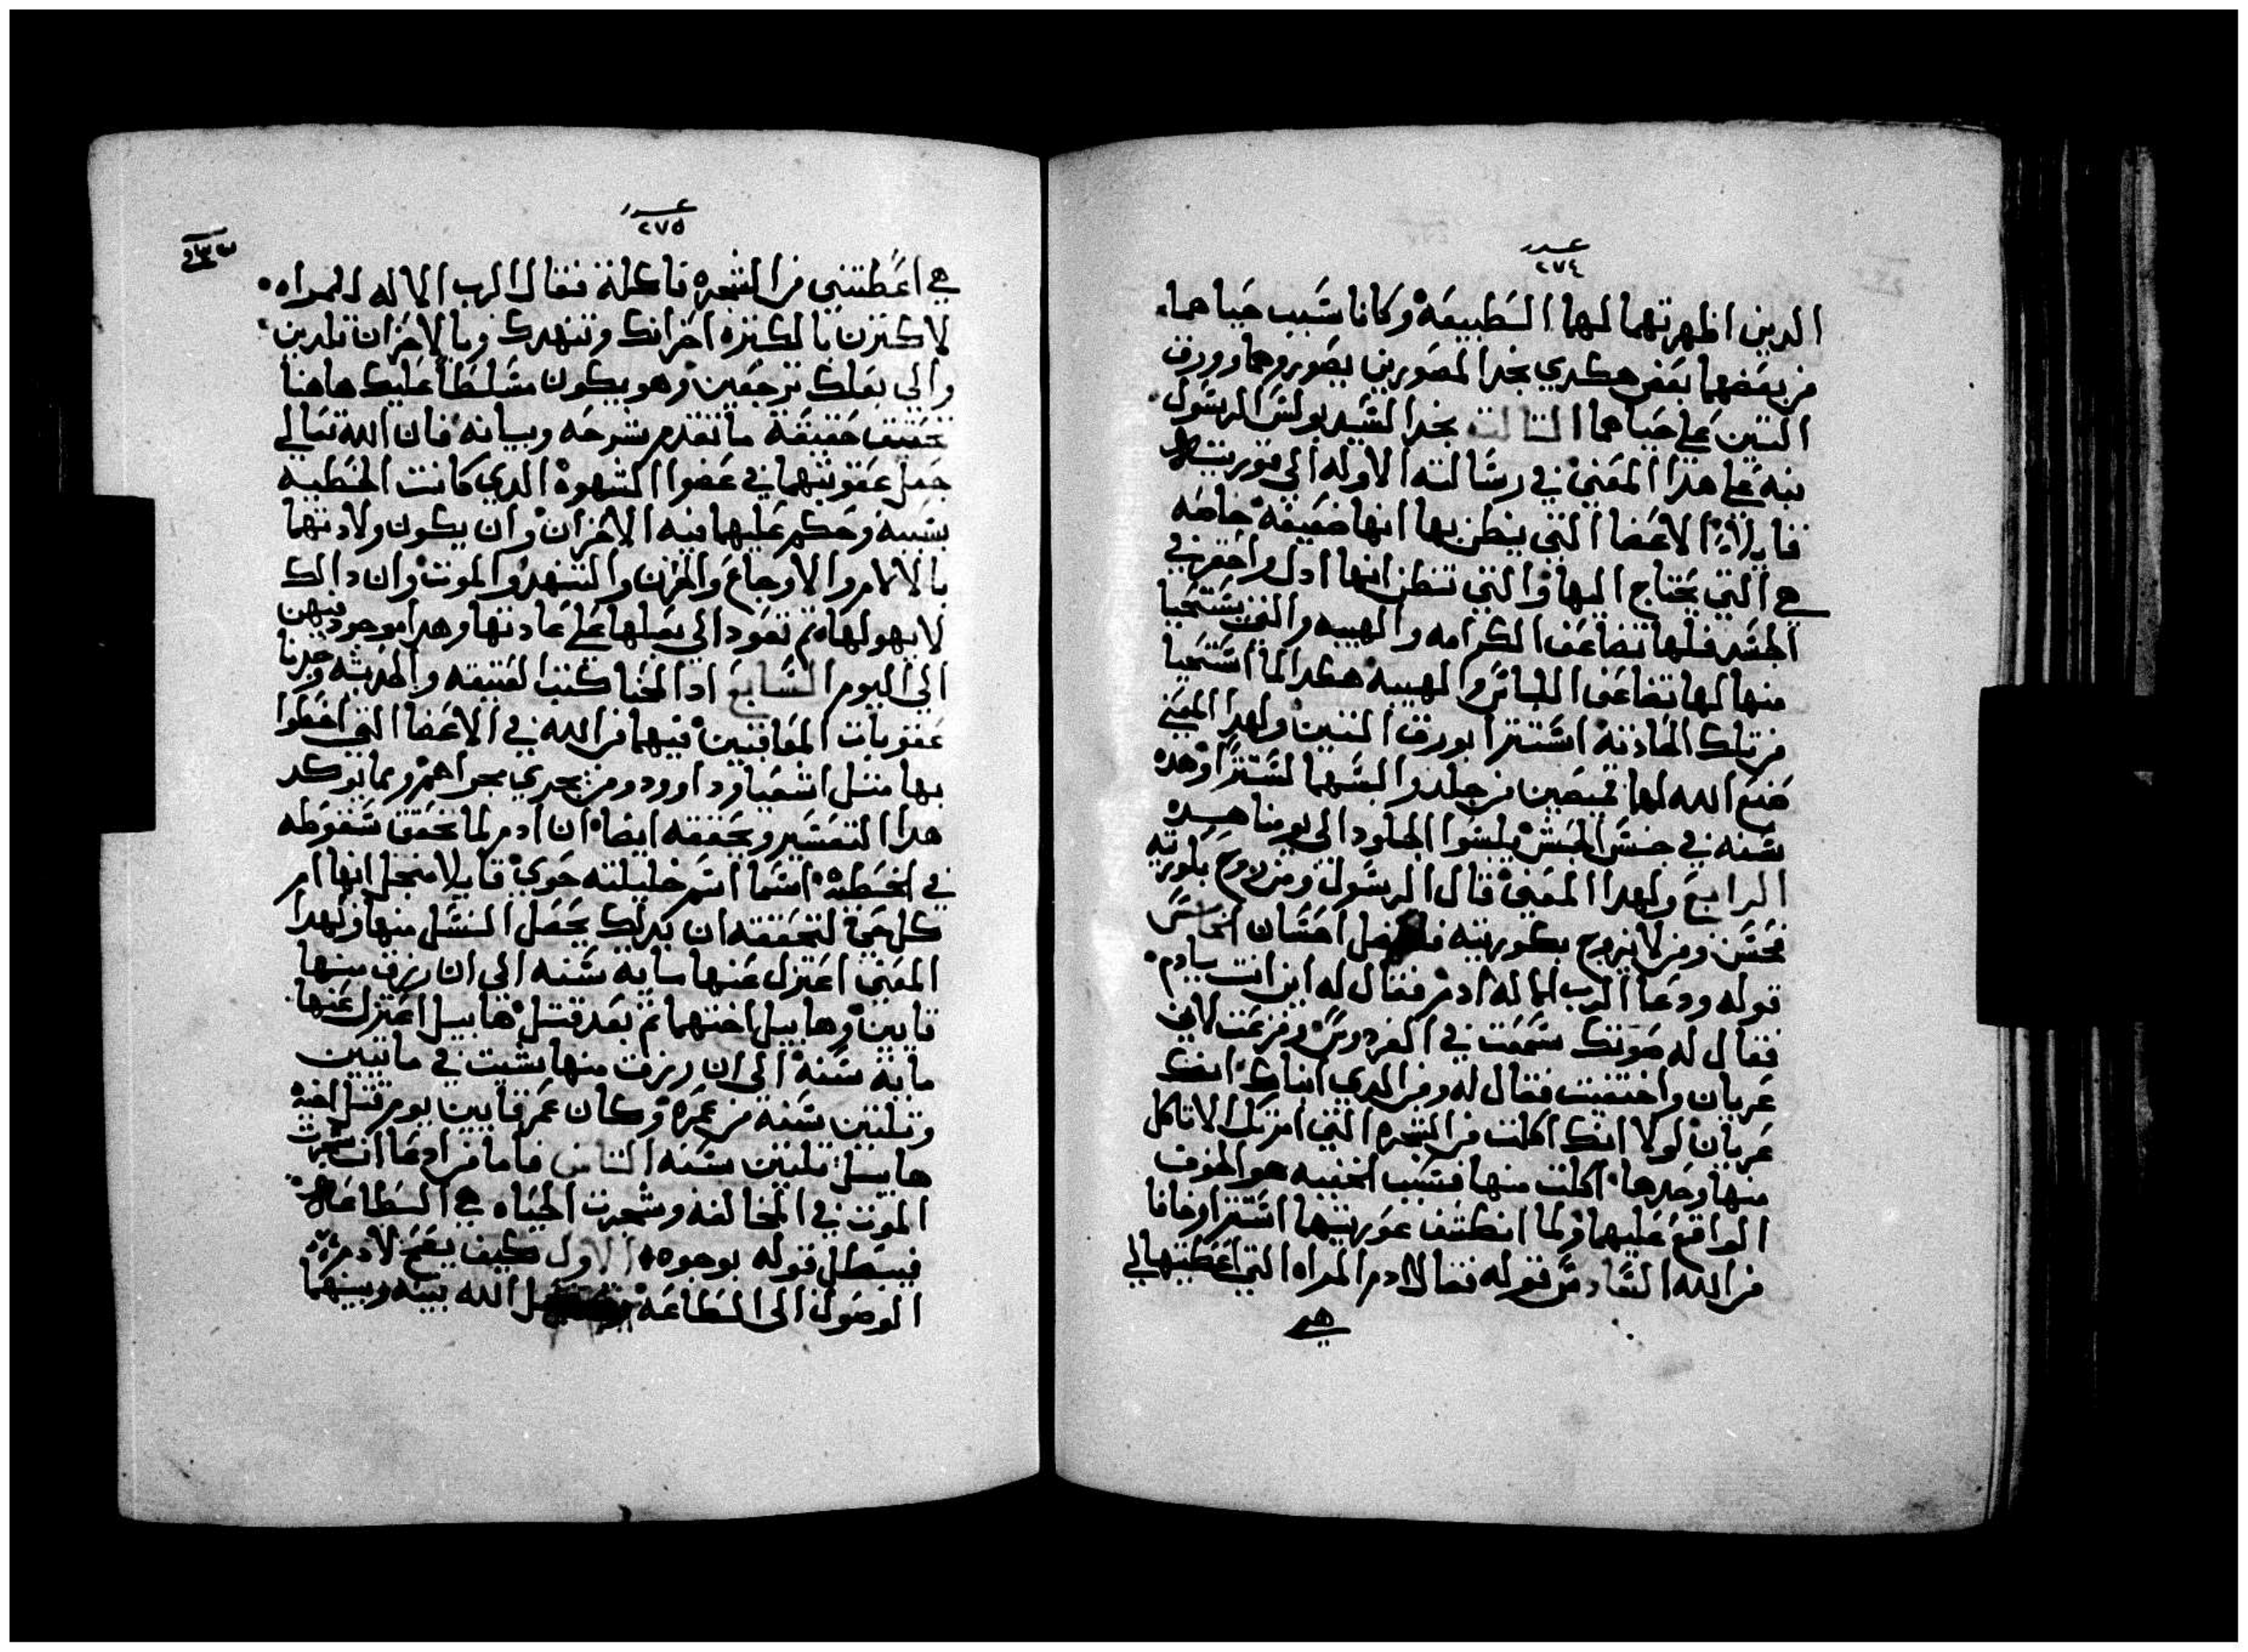 عدد
٢٧٤
الدين اظهرتهما لهما الطبيعه وكانا سبب حباهما
من بعضهما بعض هكدي نجد المصورين يصوروهما وورق
التين علي حباهما التالت نجد السيد بولس الرسول
نبه علي هدا المعني في رسالته الاوله الي قورنتيه
قايلا الاعضا التي ينظن بها انها ضعيفه خاصه
هي التي يحتاج اليها والتي تنظن انها ادل واحقر في
الجسد فلها تضاعف الكرامه والهيبه والتي يستحيا
منها لها تضاعف اللباس والهيبه هكدا لما استحيا
من تلك الحادته استترا بورق التين ولهدا المعني
صنع الله لهما قميصين من جلد والبسهما لستترا وهده
سنه في جنس الحبش يلبسوا الجلود الي يومنا هده
الرابع ولهدا المعني قال الرسول ومن زوج بكورته
فحسن ومن لا يزوج بكوريته فافضل احسان الخامس
قوله ودعا الرب الاله ادم فقال له اين انت يادم
فقال له صوتك سمعت في الفردوس وفزعت لاني
عريان واختفيت فقال له ومن الدي انباك انك
عريان لولا انك اكلت من الشجره التي امرتك الا تاكل
منها وحدها اكلت منها فسبب الخفيه هو الخوف
الواقع عليهما ولما انكشف عوريتهما استترا وخافا
من الله السادس قوله فقال ادم المراه التي اعطيتها لي
هي
عدد
٢٧٥
هي اعطتني من الشجره فاكلت فقال الرب الاله للمراه
لاكترن بالكتره احزانك وتنهدك وبالاحزان تلدين
والي بعلك ترجعين وهو يكون مسلطا عليك هاهنا
تحقيق حقيقة ما تقدم شرحه وبيانه فان الله تعالي
جعل عقوبتهما في عضوا الشهوه الدي كانت الخطيه
بسببه وحكم عليهما فيه الاحزان وان يكون ولادتها
بالالام والاوجاع والحزن والتنهد والموت وان دالك
لا يهولها تم تعود الي بعلها علي عادتها وهدا موجود فيهن
الي اليوم السابع ادا لمحنا كتب العتيقه والحديثه وجدنا
عقوبات المعاقبين فيهما من الله في الاعضا التي اخطوا
بها متل اشعيا وداوود ومن يجري مجراهم ومما يوكد
هدا التفسير ويحققه ايضا ان ادم لما تحقق سقوطه
في الخطيه اسما اسم خليلته حوي قايلا من اجل انها ام
كل حي لتحققه ان بدلك يحصل النسل منها ولهدا
المعني اعتزل عنها ماية سنه الي ان رزق منها
قايين وهابيل اختهما تم بعد قتل هابيل اعتزل عنها
ماية سنه الي ان رزق منها بشيت في مايتين
وتلتين سنه من عمره وكان عمر قايين يوم قتل اخيه
هابيل تلتين سنه التامن فاما من ادعا ان شجرت
الموت في المخالفه وشجرت الحياه هي الطاعه
فيبطل قوله بوجوه الاول كيف يصح لادم
الوصول الي الطاعه الله بينه وبينهما